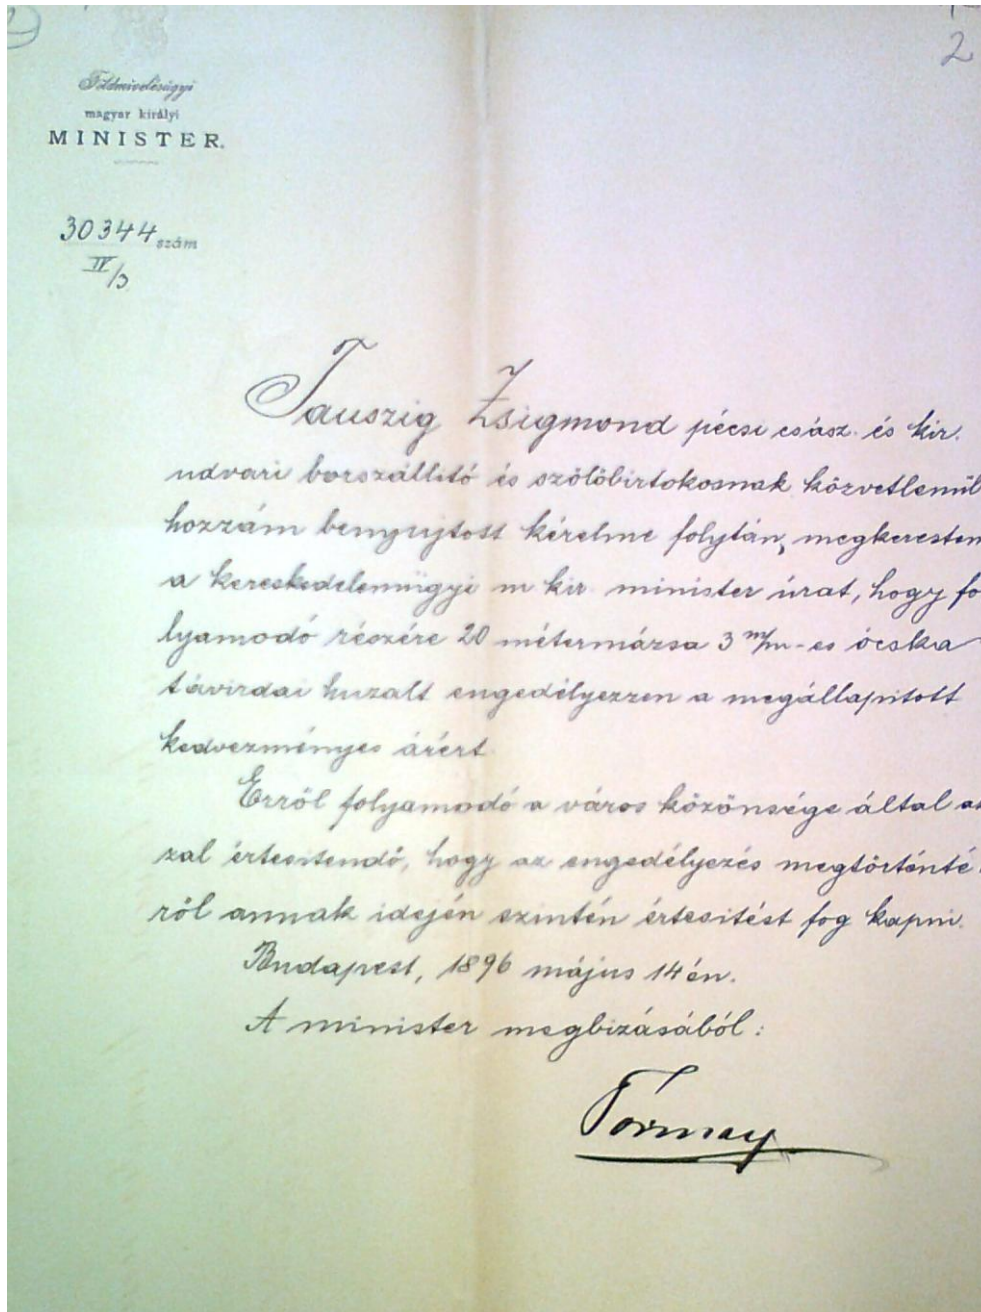 2
Földmivelésügyi
magyar királyi
MINISTER.
30344 szám
IV/3
Tauszig Zsigmond pécsi csász. és kir.
udvari borszállitó és szőlőbirtokosnak közvetlenül
hozzám benyujtott kérelme folytán, megkerestem
a kereskedelemügyi m kir. minister úrat, hogy fo
lyamodó részére 20 métermázsa 3 m/m-es ócska
távirdai huzalt engedélyezzen a megállapitott
kedvezményes árért.
Erről folyamodó a város közönsége által az
zal értesitendő, hogy az engedélyezés megtörténté
ről annak idején szintén értesitést fog kapni.
Budapest, 1896 május 14én.
A minister megbizásából:
Tormay